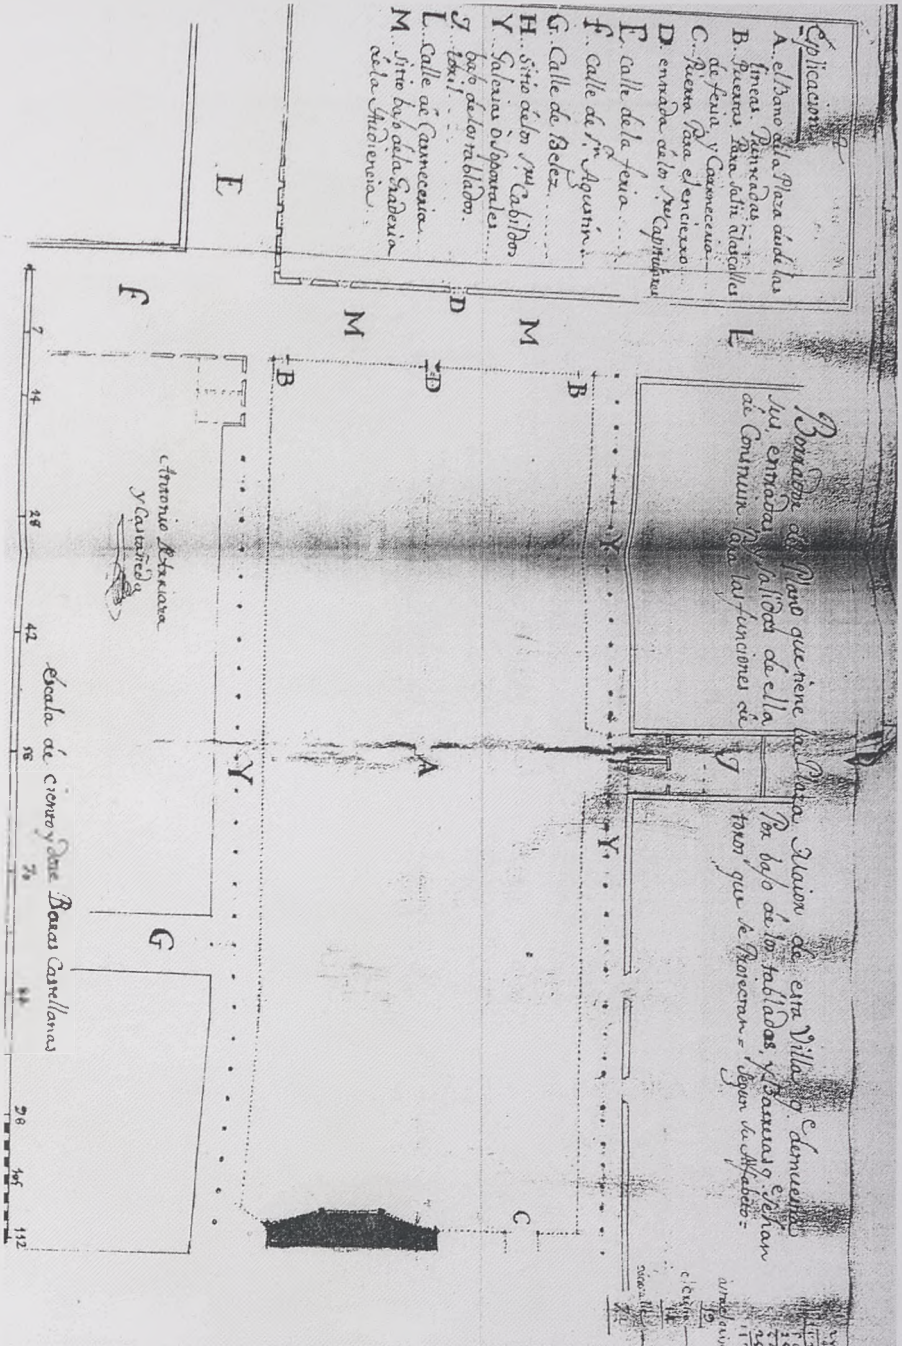 Explicacion
A. el Bano de la Plaza desde las
lineas Punteadas
B. Puertas Para Salir a las calles
de feria, y Carneceria
C. Puerta Para el encierro
D. entrada de los Sres Capitulares
E. calle de la feria
F. Calle de Sn Agustin
G. Calle de Belez
H. Sitio de los Sres Cabildos
Y. Galerias o soportales
bajo de los tablados.
J. toril
L. Calle de Carneceria
M. Sitio bajo de la Graderia
de la Audiencia.
Borrador del Plano que tiene la Plaza Maior de esta Villa q. demuestra
sus entradas y salidas de ella Por bajo de los tablados, y Barreras q. se han
de Construir Para las funciones de toros que se Proiectan = Segun su Alfabeto =
E
F
L
M
M
D
B
D
B
Y
J
A
Y
Y
G
C
Antonio
y Castañeda
Escala de ciento y doze Baras Castellanas
7
14
28
42
56
70
98
105
112